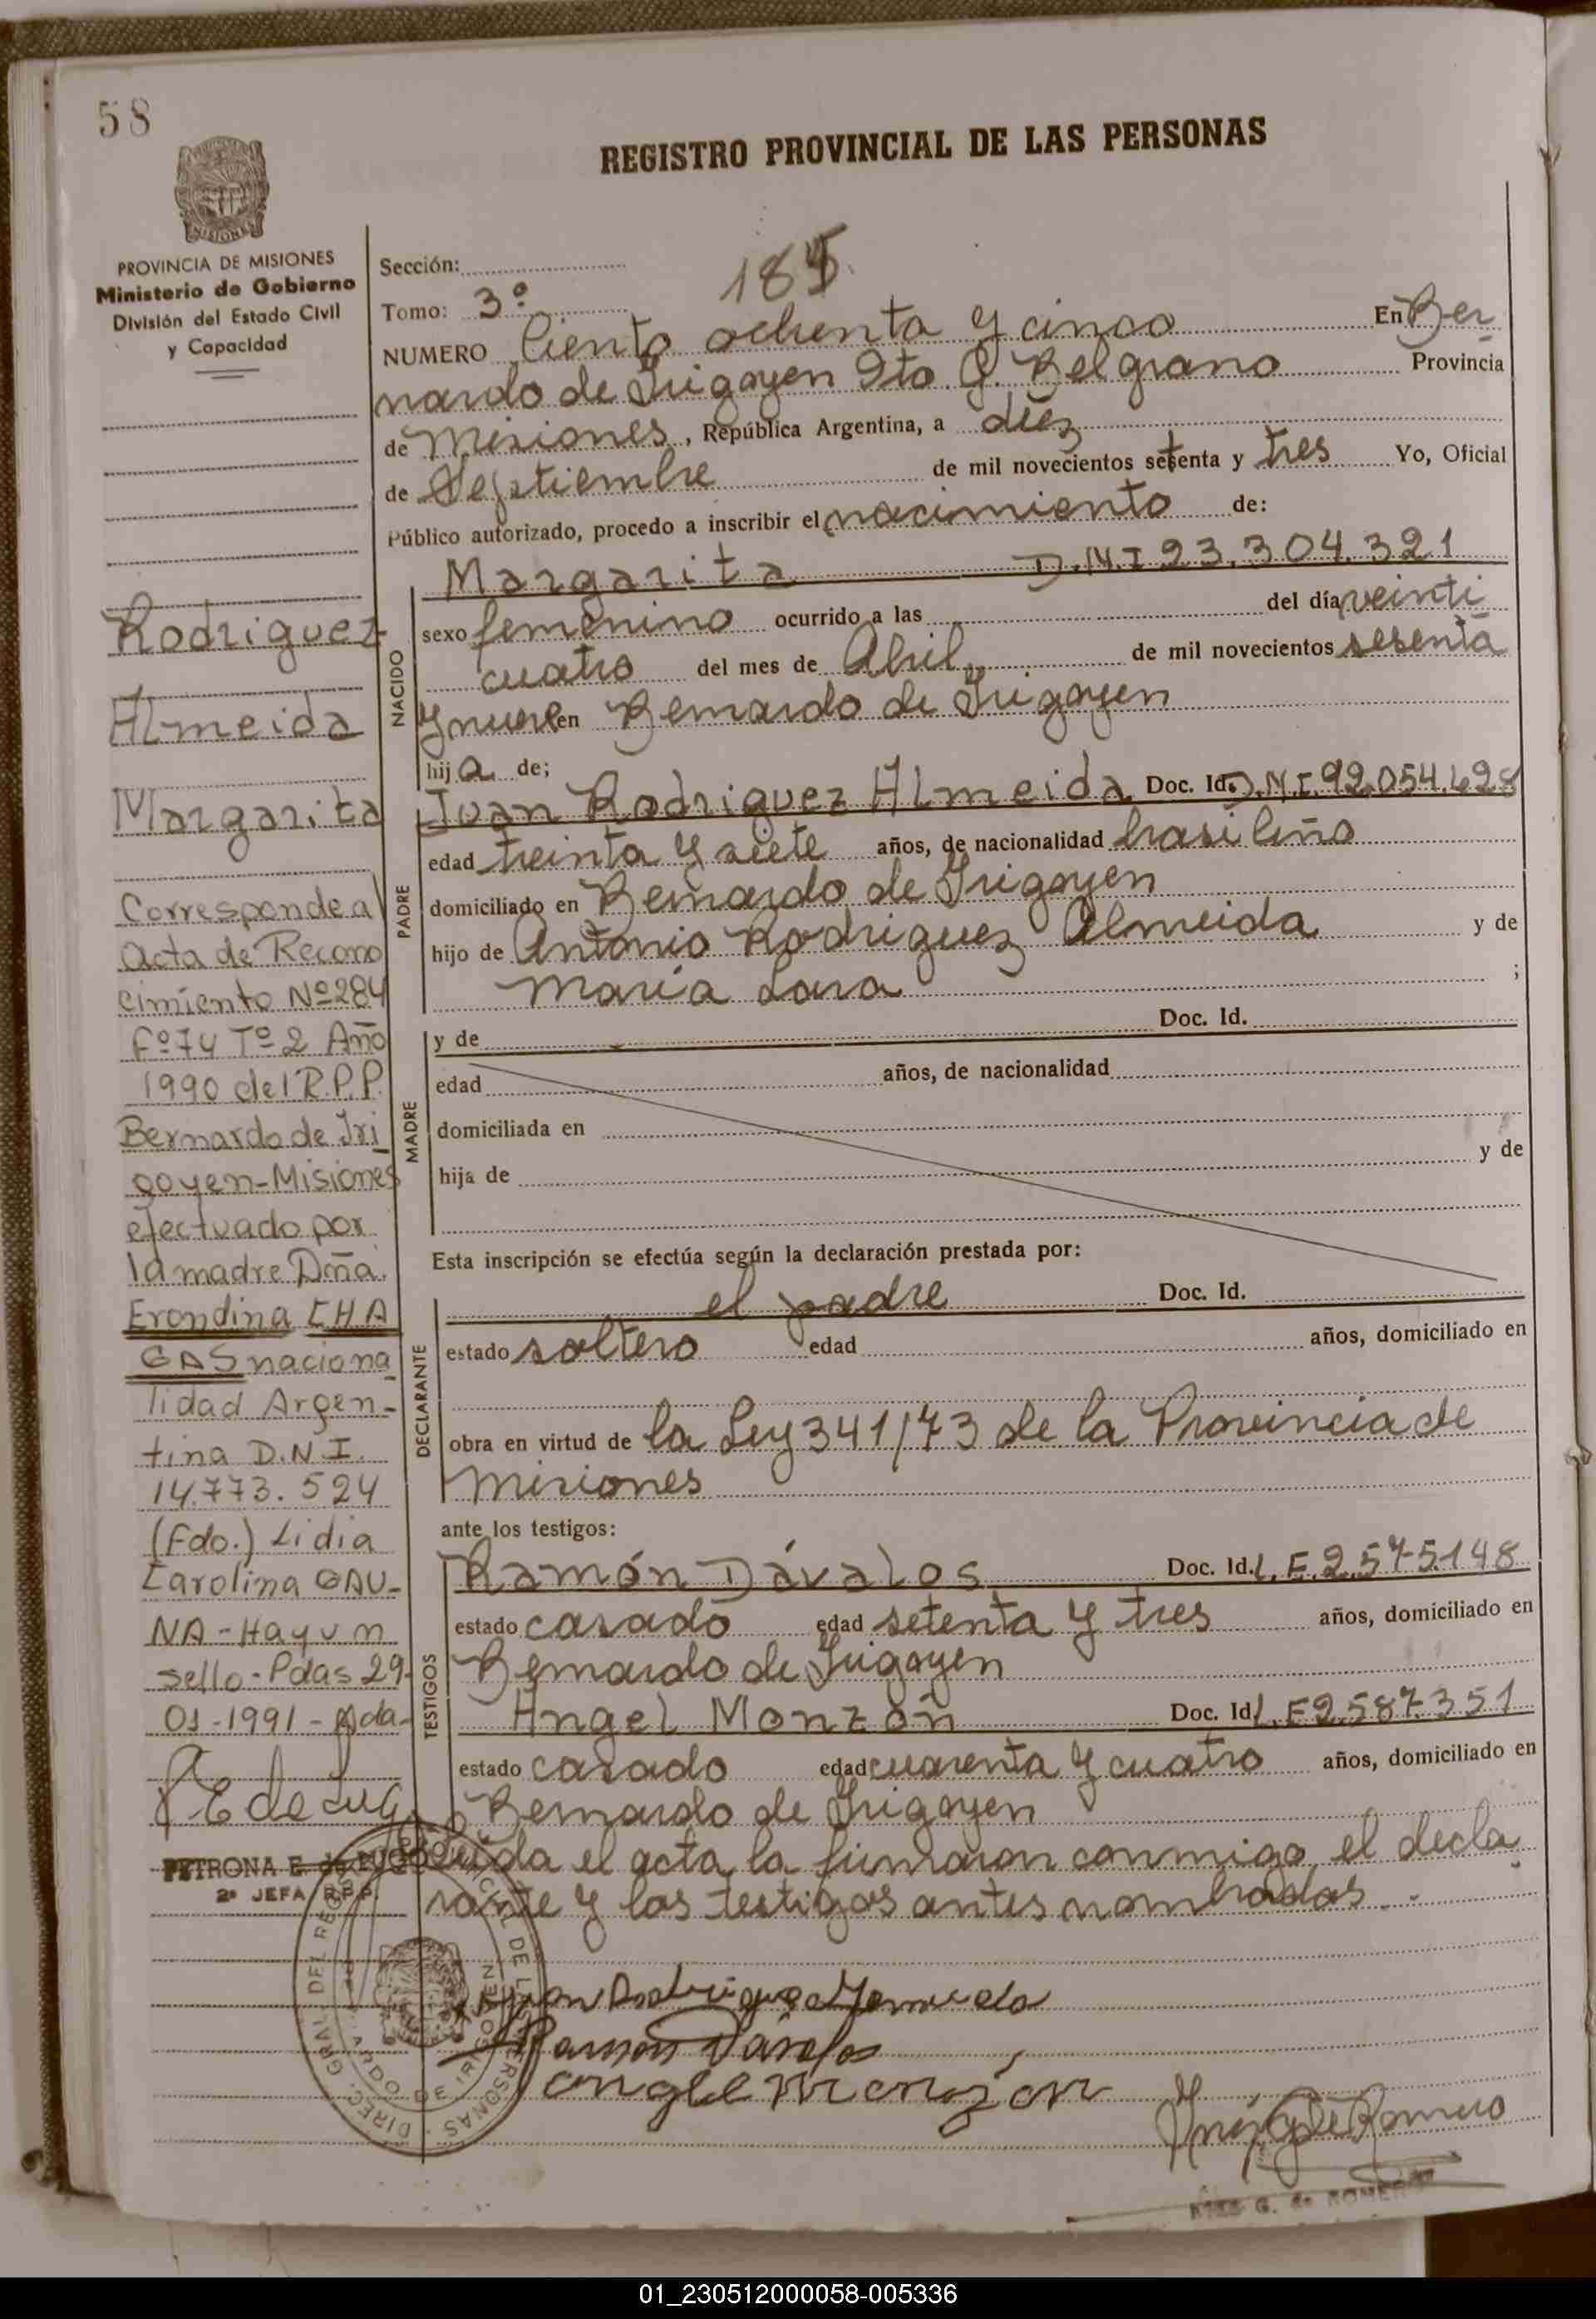 58
REGISTRO PROVINCIAL DE LAS PERSONAS
MISIONES
PROVINCIA DE MISIONES
Ministerio de Gobierno
División del Estado Civil
y Capacidad
Rodriguez
Almeida
Margarita
Corresponde al
Acta de Recono
cimiento Nº284
Fº74 Tº2 Año
1990 del R.P.P.
Bernardo de Iri
goyen-Misiones
efectuado por
la madre Dña.
Erondina CHA
GAS naciona
lidad Argen-
tina D.N.I.
14.773.524
(Fdo.) Lidia
Carolina GAU-
NA-Hay un
sello-Pdas 29-
01-1991-
PETRONA E. de LUGO
2ª JEFA R.P.P.
Sección:
185
Tomo: 3º
NUMERO Ciento ochenta y cinco En Ber
nardo de Irigoyen Dto. G. Belgrano Provincia
de Misiones, República Argentina, a diez
de Septiembre de mil novecientos setenta y tres Yo, Oficial
Público autorizado, procedo a inscribir el nacimiento de:
Margarita D.N.I 23.304.321
NACIDO
sexo femenino ocurrido a las del día veinti
cuatro del mes de Abril de mil novecientos sesenta
y nueve en Bernardo de Irigoyen
hij a de;
PADRE
Juan Rodriguez Almeida Doc. Id. D.N.I. 92.054.628
edad treinta y siete años, de nacionalidad brasileño
domiciliado en Bernardo de Irigoyen
hijo de Antonio Rodriguez Almeida y de
Maria Lara ;
MADRE
y de Doc. Id.
edad años, de nacionalidad
domiciliada en
hija de y de
Esta inscripción se efectúa según la declaración prestada por:
DECLARANTE
el padre Doc. Id.
estado soltero edad años, domiciliado en
obra en virtud de la Ley 341/73 de la Provincia de
Misiones
ante los testigos:
TESTIGOS
Ramón Dávalos Doc. Id. L.E. 2.575.148
estado casado edad setenta y tres años, domiciliado en
Bernardo de Irigoyen
Angel Monzón Doc. Id L.E 2.587.351
estado casado edad cuarenta y cuatro años, domiciliado en
Bernardo de Irigoyen
el acta la firmaron conmigo, el decla
rante y los testigos antes nombrados.-
Ramon Dávalos
angel monzon
Inés G de Romero
INES G. de ROMERO
01_230512000058-005336